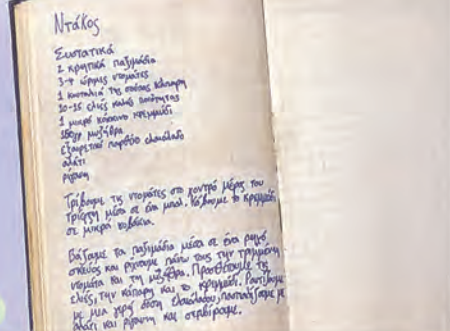 Ντάκος
Συστατικά
2 κρητικά παξιμάδια
3-4 ώριμες ντομάτες
1 κουταλιά της σούπας κάπαρη
10-15 ελιές καλής ποιότητας
1 μικρό κόκκινο κρεμμύδι
180γρ μυζήθρα
εξαιρετικό παρθένο ελαιόλαδο
αλάτι
ρίγανη
Τρίβουμε τις ντομάτες στο χοντρό μέρος του
τρίφτη μέσα σε ένα μπολ. Κόβουμε το κρεμμύδι
σε μικρά κυβάκια.
Βάζουμε τα παξιμάδια μέσα σε ένα ρηχό
σκεύος και ρίχνουμε πάνω τους την τριμμένη
ντομάτα και τη μυζήθρα. Προσθέτουμε τις
ελιές, την κάπαρη και το κρεμμύδι. Ραντίζουμε
με μια γερή δόση ελαιόλαδου, πασπαλίζουμε με
αλάτι και ρίγανη και σερβίρουμε.